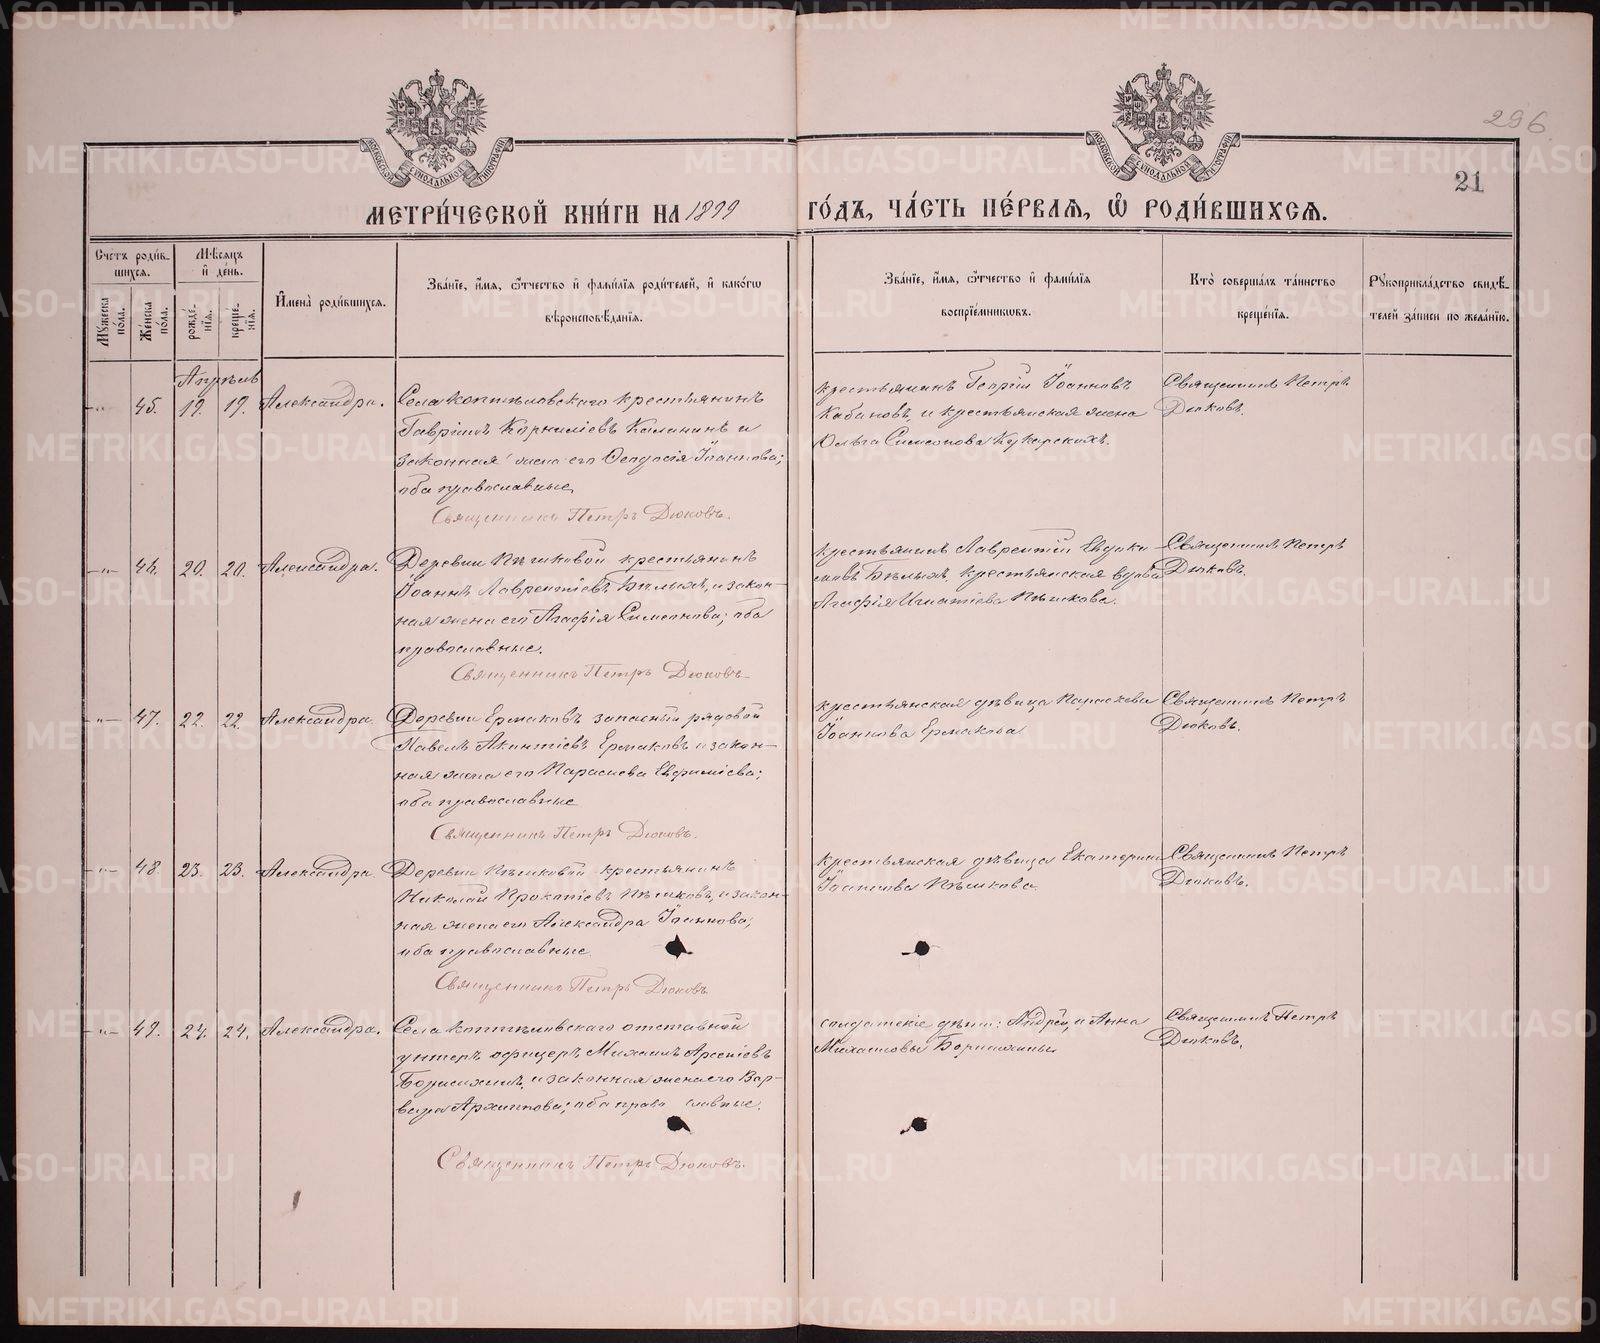 296
21
МОСКОВСКОЙ СУНОДАЛЬНОЙ ТИПОГРАФІИ
МОСКОВСКОЙ СУНОДАЛЬНОЙ ТИПОГРАФІИ
МЕТРИ́ЧЕСКОЙ КНИ́ГИ НА 1899 ГО́ДЪ, ЧА́СТЬ ПЕ́РВАЯ, Ѡ҆ РОДИ́ВШИХСЯ.
Сче́тъ роди́в-
шихся.
Мѣ́сяцъ
и҆ де́нь.
Мꙋ́жеска по́ла.
Же́нска по́ла.
рожде́-
нїя.
креще́-
нїя.
И҆мена̀ роди́вшихся.
Зва́нїе, и҆́мя, ѻ҆́тчество и҆ фами́лїя роди́телей, и҆ како́гѡ
вѣроисповѣ́данїя.
Зва́нїе, и҆́мя, ѻ҆́тчество и҆ фами́лїя
воспрїе́мникѡвъ.
Кто̀ соверша́лъ та́инство
креще́нїя.
Рꙋкоприкла́дство свидѣ́-
телей за́писи по жела́нїю.
Апрѣль
-„- 45. 19. 19. Александра.
Села Коптѣловскаго крестьянинъ
Гавріилъ Корниліевъ Калининъ и
законная жена его Ѳеодосія Іоаннова;
оба православные.
Священникъ Петръ Дюковъ.
крестьянинъ Георгій Іоанновъ
Кабаковъ и крестьянская жена
Ольга Симеонова Кукарскихъ.
Священникъ Петръ
Дюковъ.
-„- 46. 20. 20. Александра.
Деревни Пѣшковой крестьянинъ
Іоаннъ Лаврентіевъ Бѣлыхъ, и закон-
ная жена его Агафія Симеонова; оба
православные.
Священникъ Петръ Дюковъ
крестьянинъ Лаврентій Евдоки-
мовъ Бѣлыхъ, крестьянская вдова
Агафія Игнатіева Пѣшкова.
Священникъ Петръ
Дюковъ.
-„- 47. 22. 22. Александра.
Деревни Ермаковъ запасный рядовой
Павелъ Акинтіевъ Ермаковъ и закон-
ная жена его Параскева Евфиміева;
оба православные
Священникъ Петръ Дюковъ.
крестьянская дѣвица Параскева
Іоаннова Ермакова
Священникъ Петръ
Дюковъ.
-„- 48. 23. 23. Александра.
Деревни Пѣшковой крестьянинъ
Николай Прокопіевъ Пѣшковъ, и закон-
ная жена его Александра Іоаннова;
оба православные.
Священникъ Петръ Дюковъ
крестьянская дѣвица Екатерина
Іоаннова Пѣшкова.
Священникъ Петръ
Дюковъ.
-„- 49. 24. 24. Александра.
Села Коптѣловскаго отставной
унтеръ офицеръ Михаилъ Арсеніевъ
и законная жена его Вар-
вара Архипова; оба православные.
Священникъ Петръ Дюковъ.
солдатскіе дѣти: Андрей, и Анна
Михаиловы
Священникъ Петръ
Дюковъ.